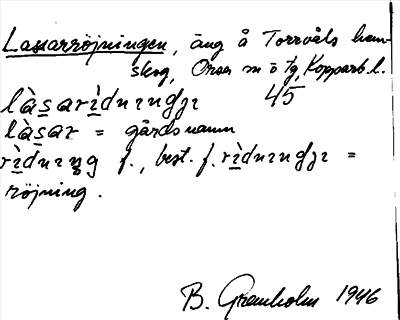 Lassarröjningen, äng å Torrvåls hem-
skog, Orsa sn o tg, Kopparb. l.
làsarìdnıŋgı 45
làsar = gårdsnamn
rìdnıŋg f., best. f. rìdnıŋgı =
röjning.
B. Granholm 1946